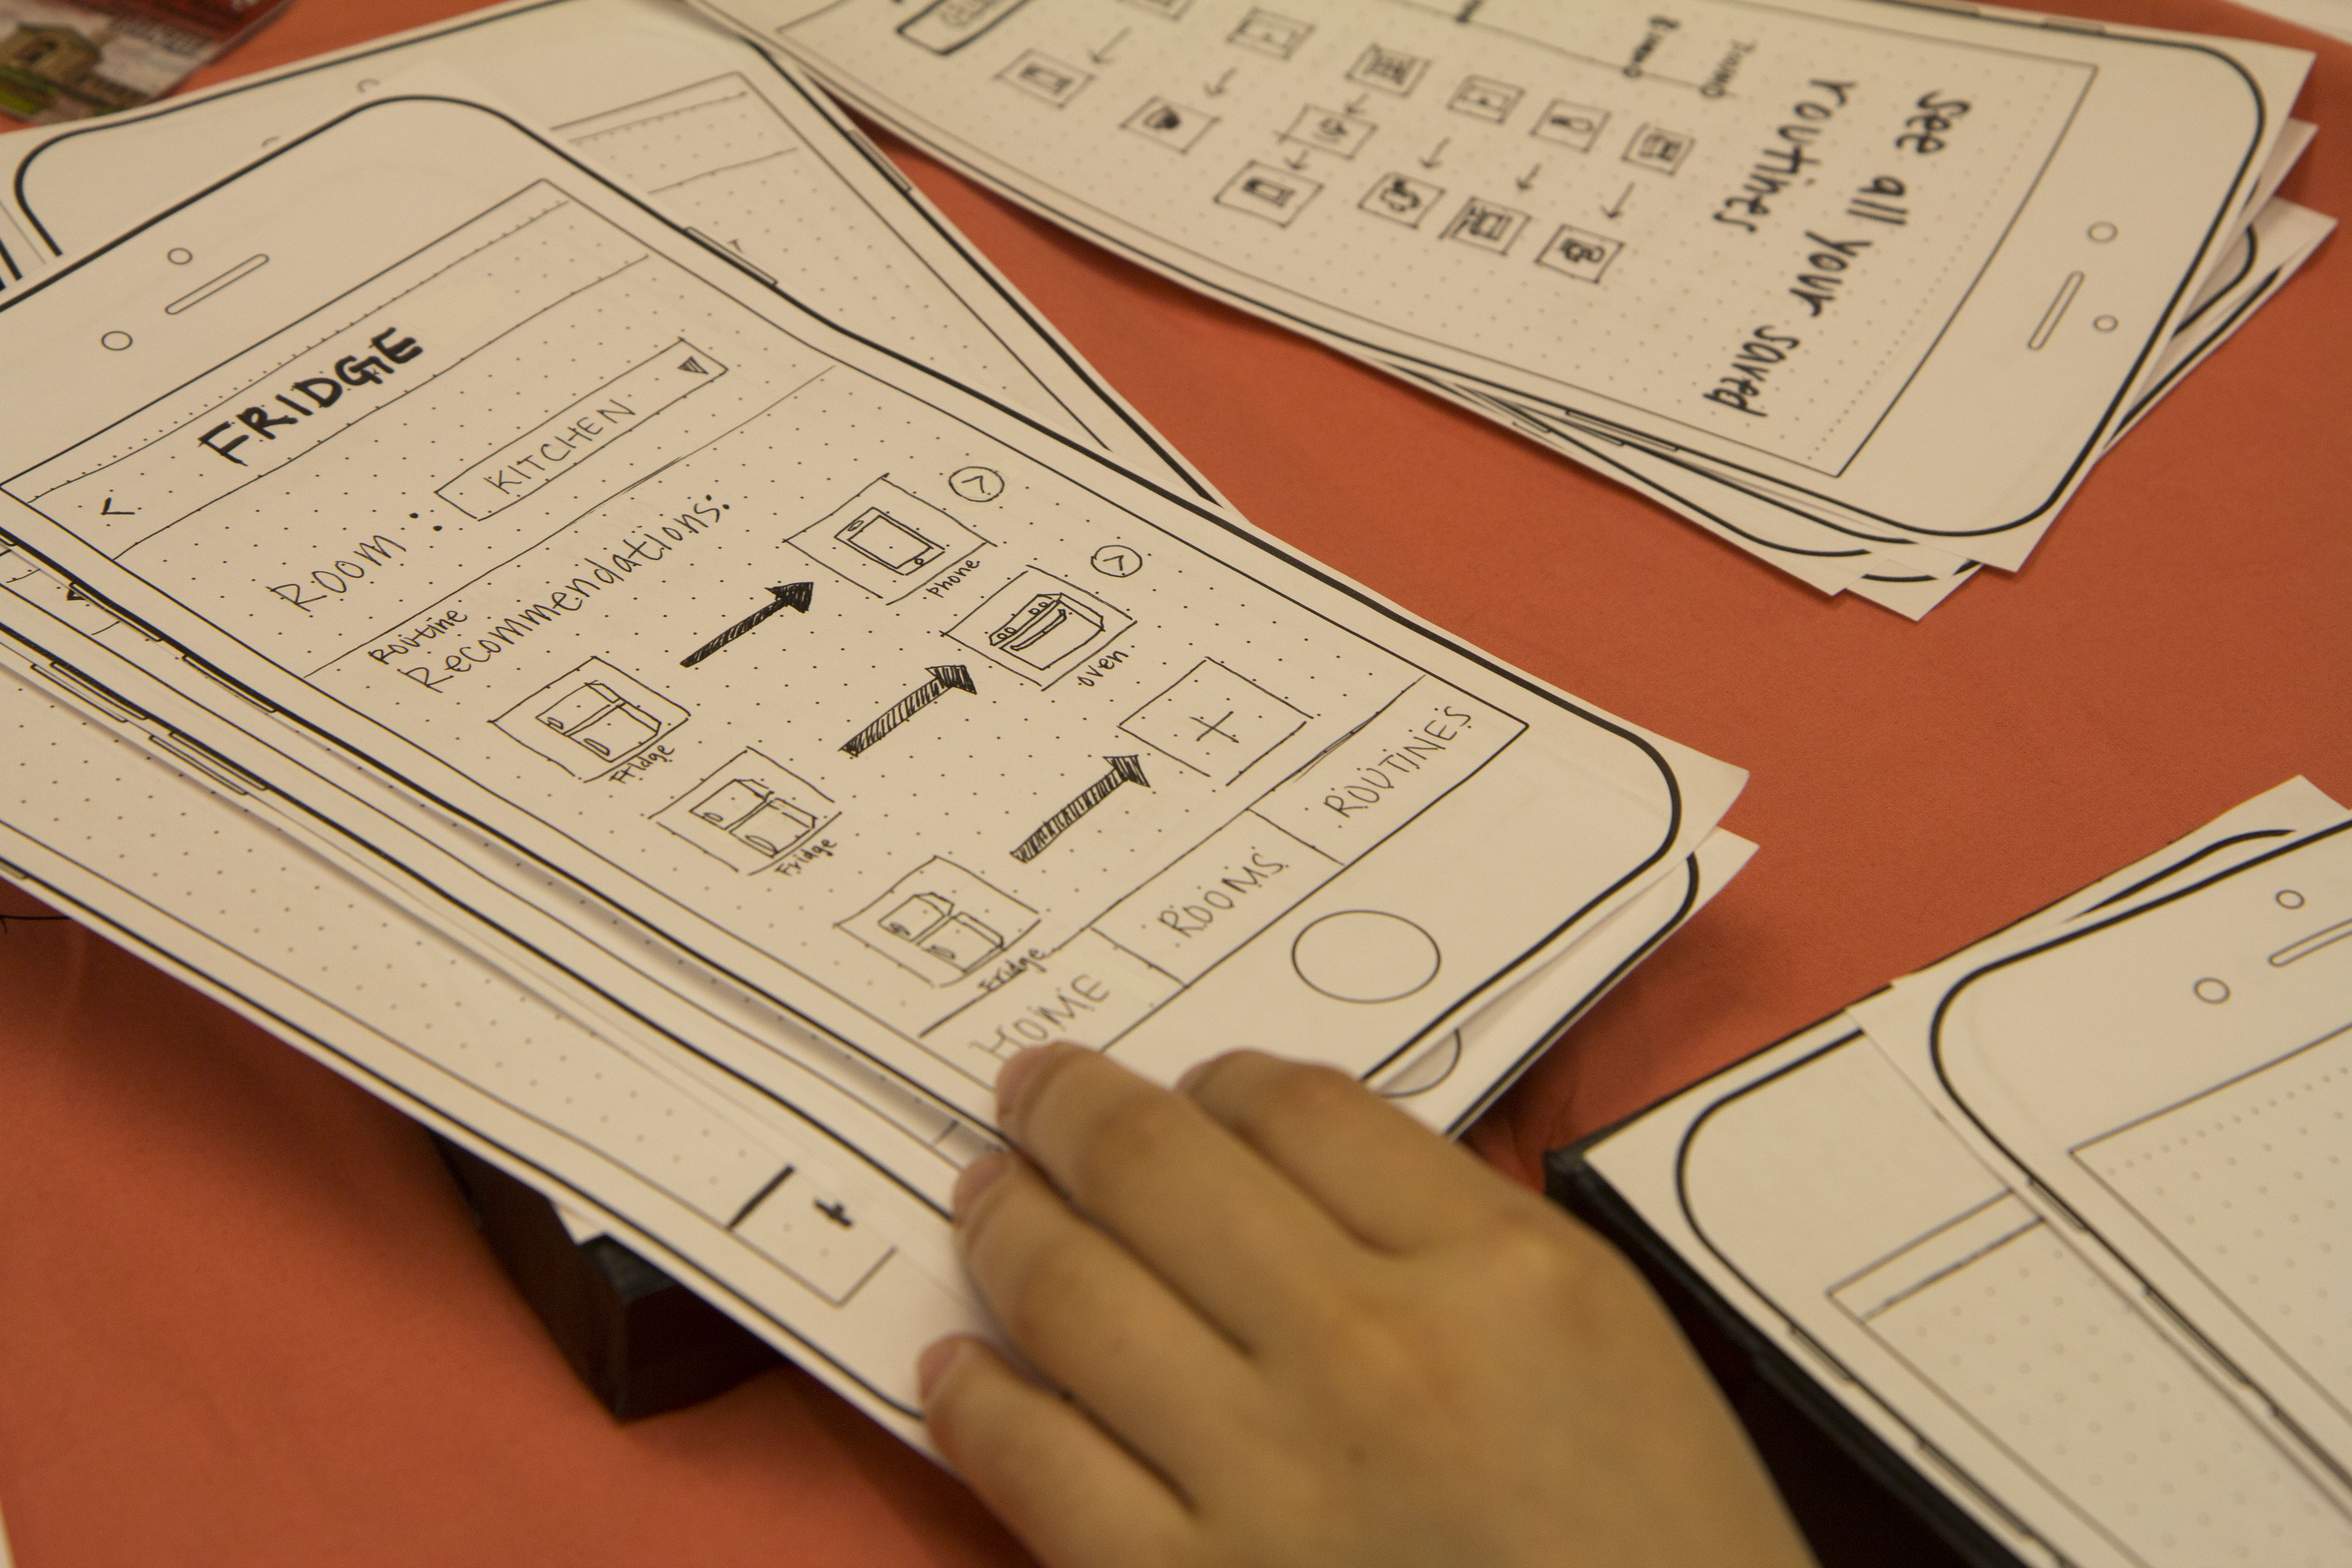 FRIDGE
<
ROOM : KITCHEN
Routine
Recommendations:
Fridge
Phone
>
Fridge
oven
>
Fridge
+
HOME
ROOMS
ROUTINES
+
See all your saved
routines